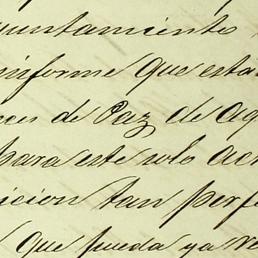 untamiento
informe que esta
ces de Paz de Ag
para este solo ac
icion tan perf
que pueda ya ve